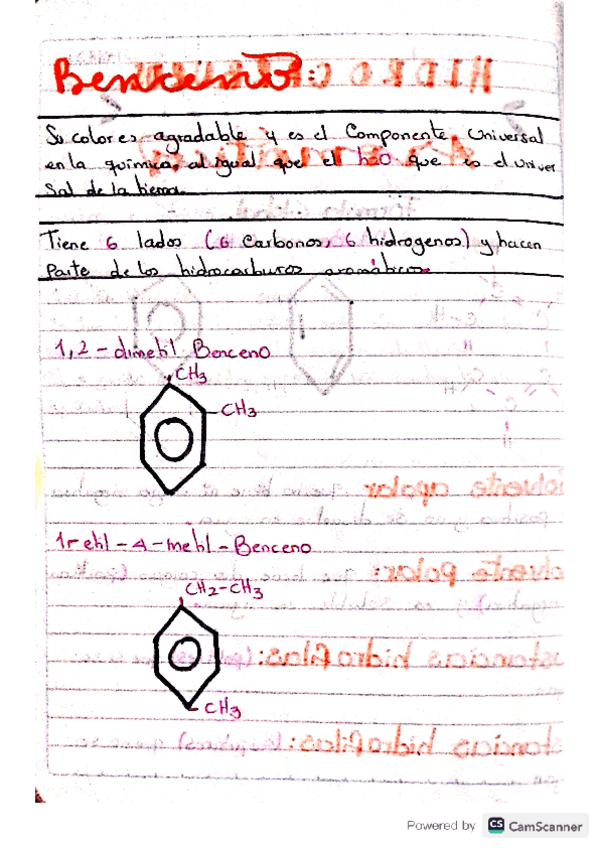 Benceno:
Su color es agradable y es el Componente Universal
en la química, al igual que el h2o que es el univer
sal de la tierra.
Tiene 6 lados (6 carbonos, 6 hidrogenos) y hacen
Parte de los hidrocarburos aromáticos.
1,2-dimetil Benceno
CH3
CH3
etil-4-metil-Benceno
CH2-CH3
CH3
Powered by CS CamScanner